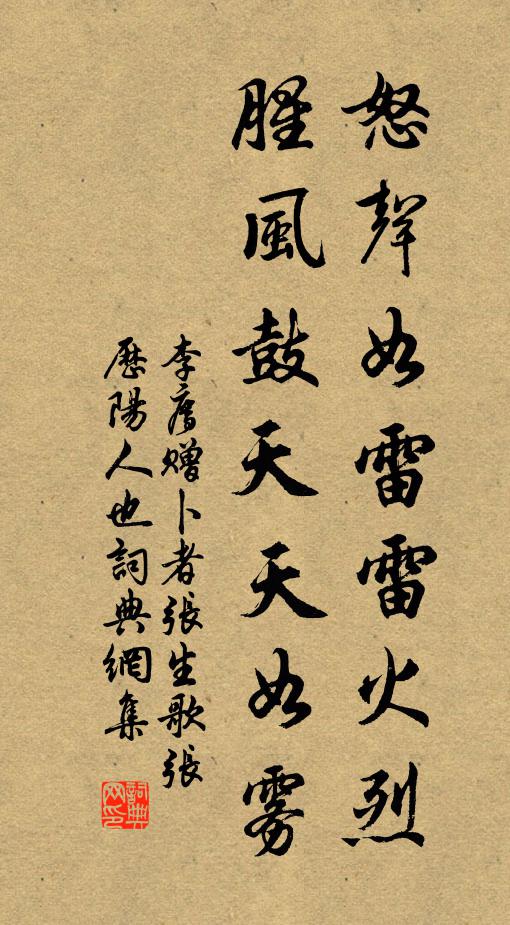 怒聲如雷雷火烈
腥風鼓天天如雾
李廌赠卜者張生歌張
歷陽人也詞典網集
詞典
网印